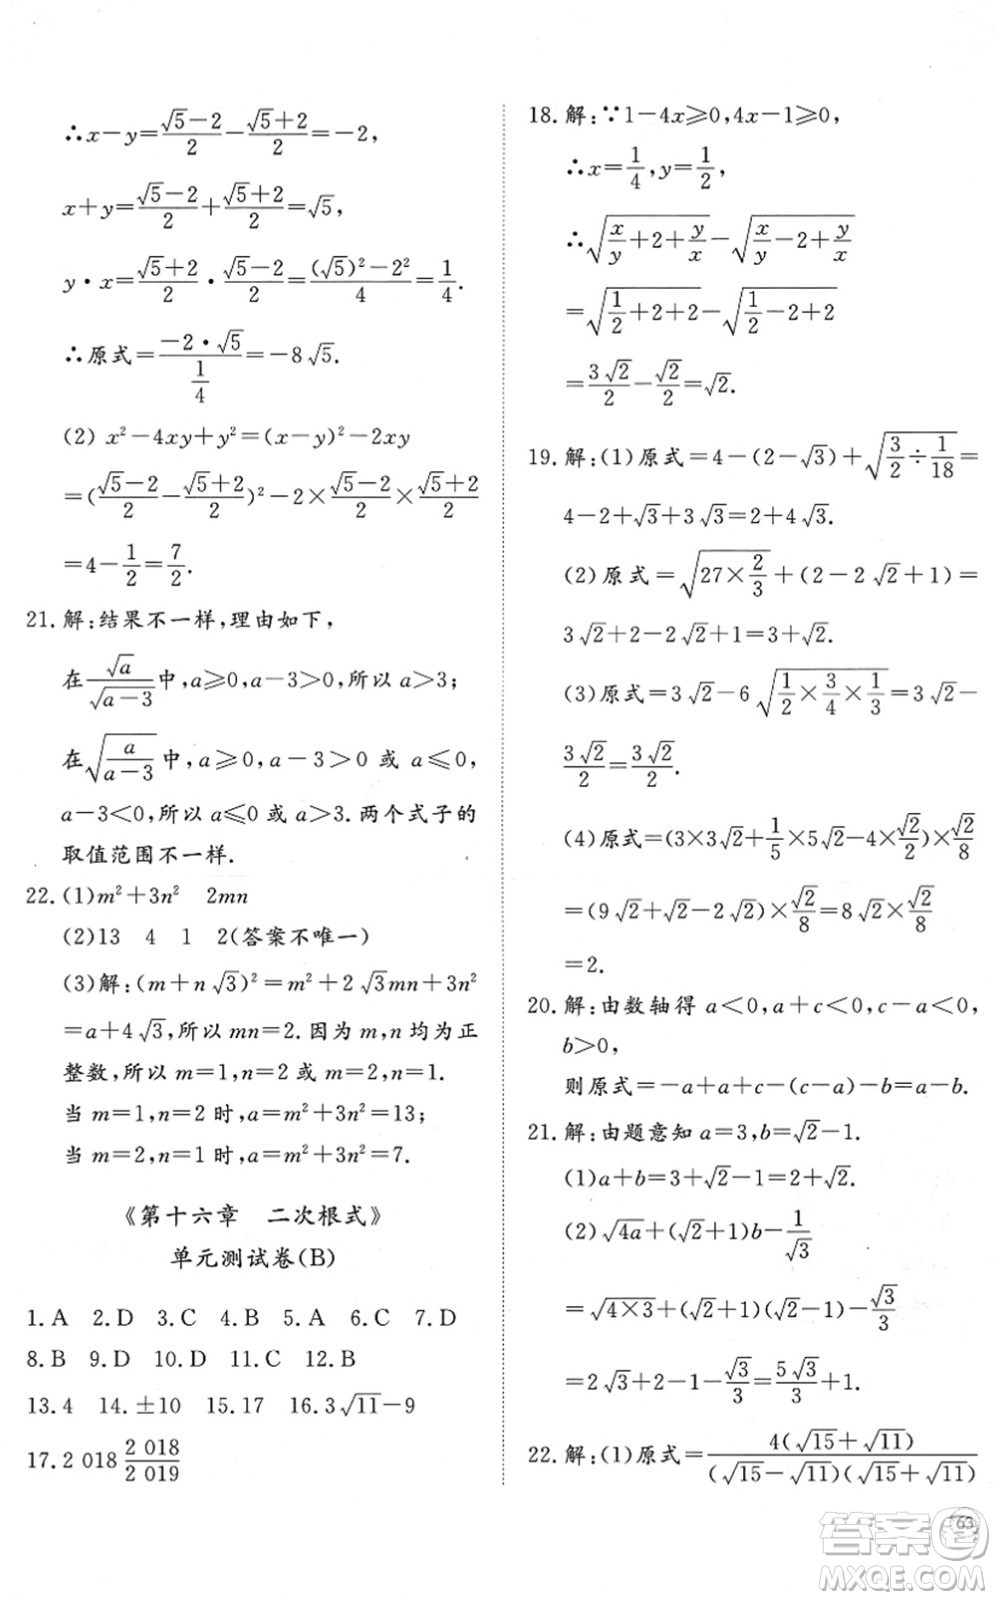 ∴x−y=(√5−2)/2−(√5+2)/2=−2,
x+y=(√5−2)/2+(√5+2)/2=√5,
y·x=(√5+2)/2·(√5−2)/2=((√5)²−2²)/4=1/4.
∴原式=(−2·√5)/(1/4)=−8√5.
(2) x²−4xy+y²=(x−y)²−2xy
=((√5−2)/2−(√5+2)/2)²−2×(√5−2)/2×(√5+2)/2
=4−1/2=7/2.
21.解:结果不一样,理由如下,
在√a/√(a−3)中,a⩾0,a−3>0,所以a>3;
在√(a/(a−3))中,a⩾0,a−3>0或a⩽0,
a−3<0,所以a⩽0或a>3.两个式子的
取值范围不一样.
22.(1)m²+3n² 2mn
(2)13 4 1 2(答案不唯一)
(3)解:(m+n√3)²=m²+2√3mn+3n²
=a+4√3,所以mn=2.因为m,n均为正
整数,所以m=1,n=2或m=2,n=1.
当m=1,n=2时,a=m²+3n²=13;
当m=2,n=1时,a=m²+3n²=7.
《第十六章 二次根式》
单元测试卷(B)
1.A 2.D 3.C 4.B 5.A 6.C 7.D
8.B 9.D 10.D 11.C 12.B
13.4 14.±10 15.17 16.3√11−9
17.2 018√(2 018/2 019)
18.解:∵1−4x⩾0,4x−1⩾0,
∴x=1/4,y=1/2,
∴√(x/y+2+y/x)−√(x/y−2+y/x)
=√(1/2+2+2)−√(1/2−2+2)
=3√2/2−√2/2=√2.
19.解:(1)原式=4−(2−√3)+√(3/2÷1/18)=
4−2+√3+3√3=2+4√3.
(2)原式=√(27×2/3)+(2−2√2+1)=
3√2+2−2√2+1=3+√2.
(3)原式=3√2−6√(1/2×3/4×1/3)=3√2−
3√2/2=3√2/2.
(4)原式=(3×3√2+1/5×5√2−4×√2/2)×√2/8
=(9√2+√2−2√2)×√2/8=8√2×√2/8
=2.
20.解:由数轴得a<0,a+c<0,c−a<0,
b>0,
则原式=−a+a+c−(c−a)−b=a−b.
21.解:由题意知a=3,b=√2−1.
(1)a+b=3+√2−1=2+√2.
(2)√4a+(√2+1)b−1/√3
=√(4×3)+(√2+1)(√2−1)−√3/3
=2√3+2−1−√3/3=5√3/3+1.
22.解:(1)原式=4(√15+√11)/((√15−√11)(√15+√11))
63
答案圈
MXQE.COM